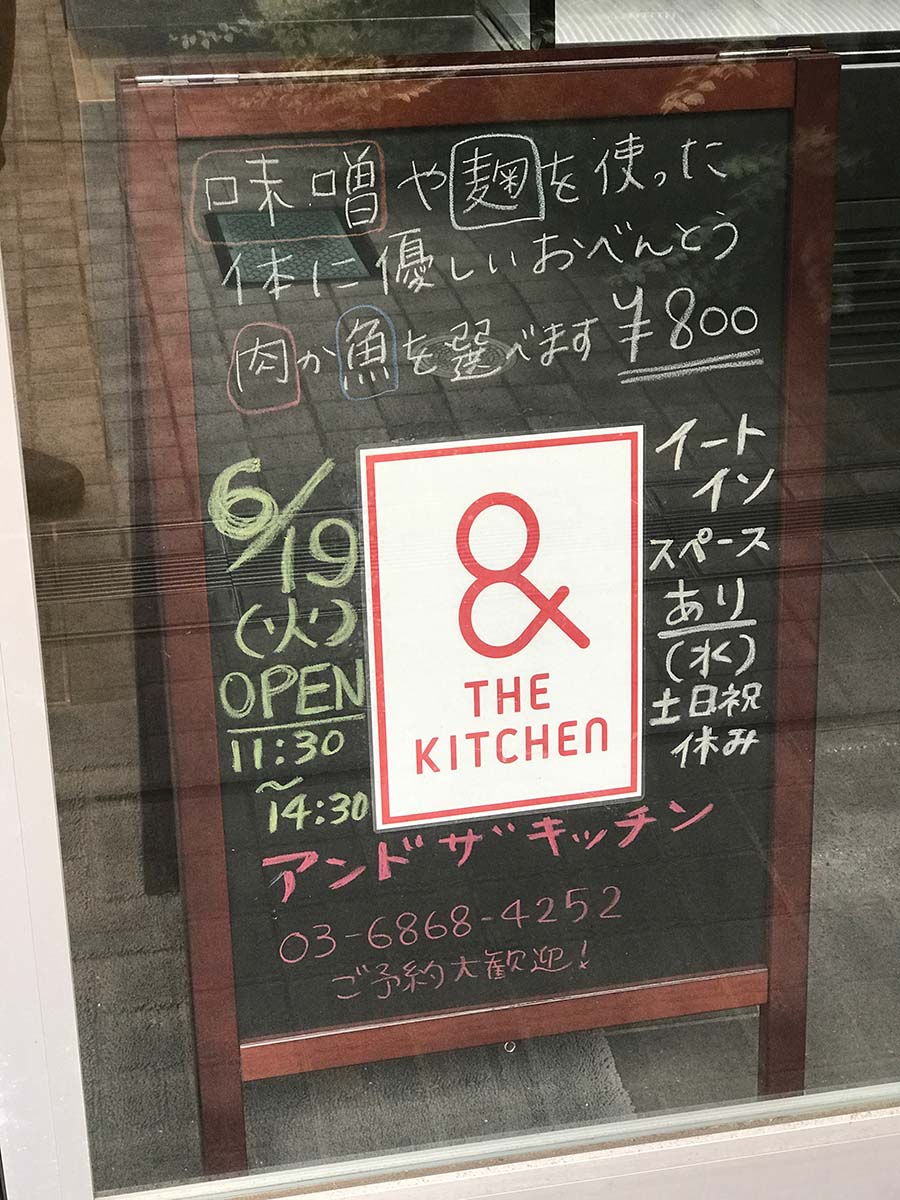 味噌や麹を使った
体に優しいおべんとう
肉か魚を選べます ¥800
6/19
(火)
OPEN
11:30
～
14:30
&
THE
KITCHEN
イート
イン
スペース
あり
(水)
土日祝
休み
アンドザキッチン
03-6868-4252
ご予約大歓迎!